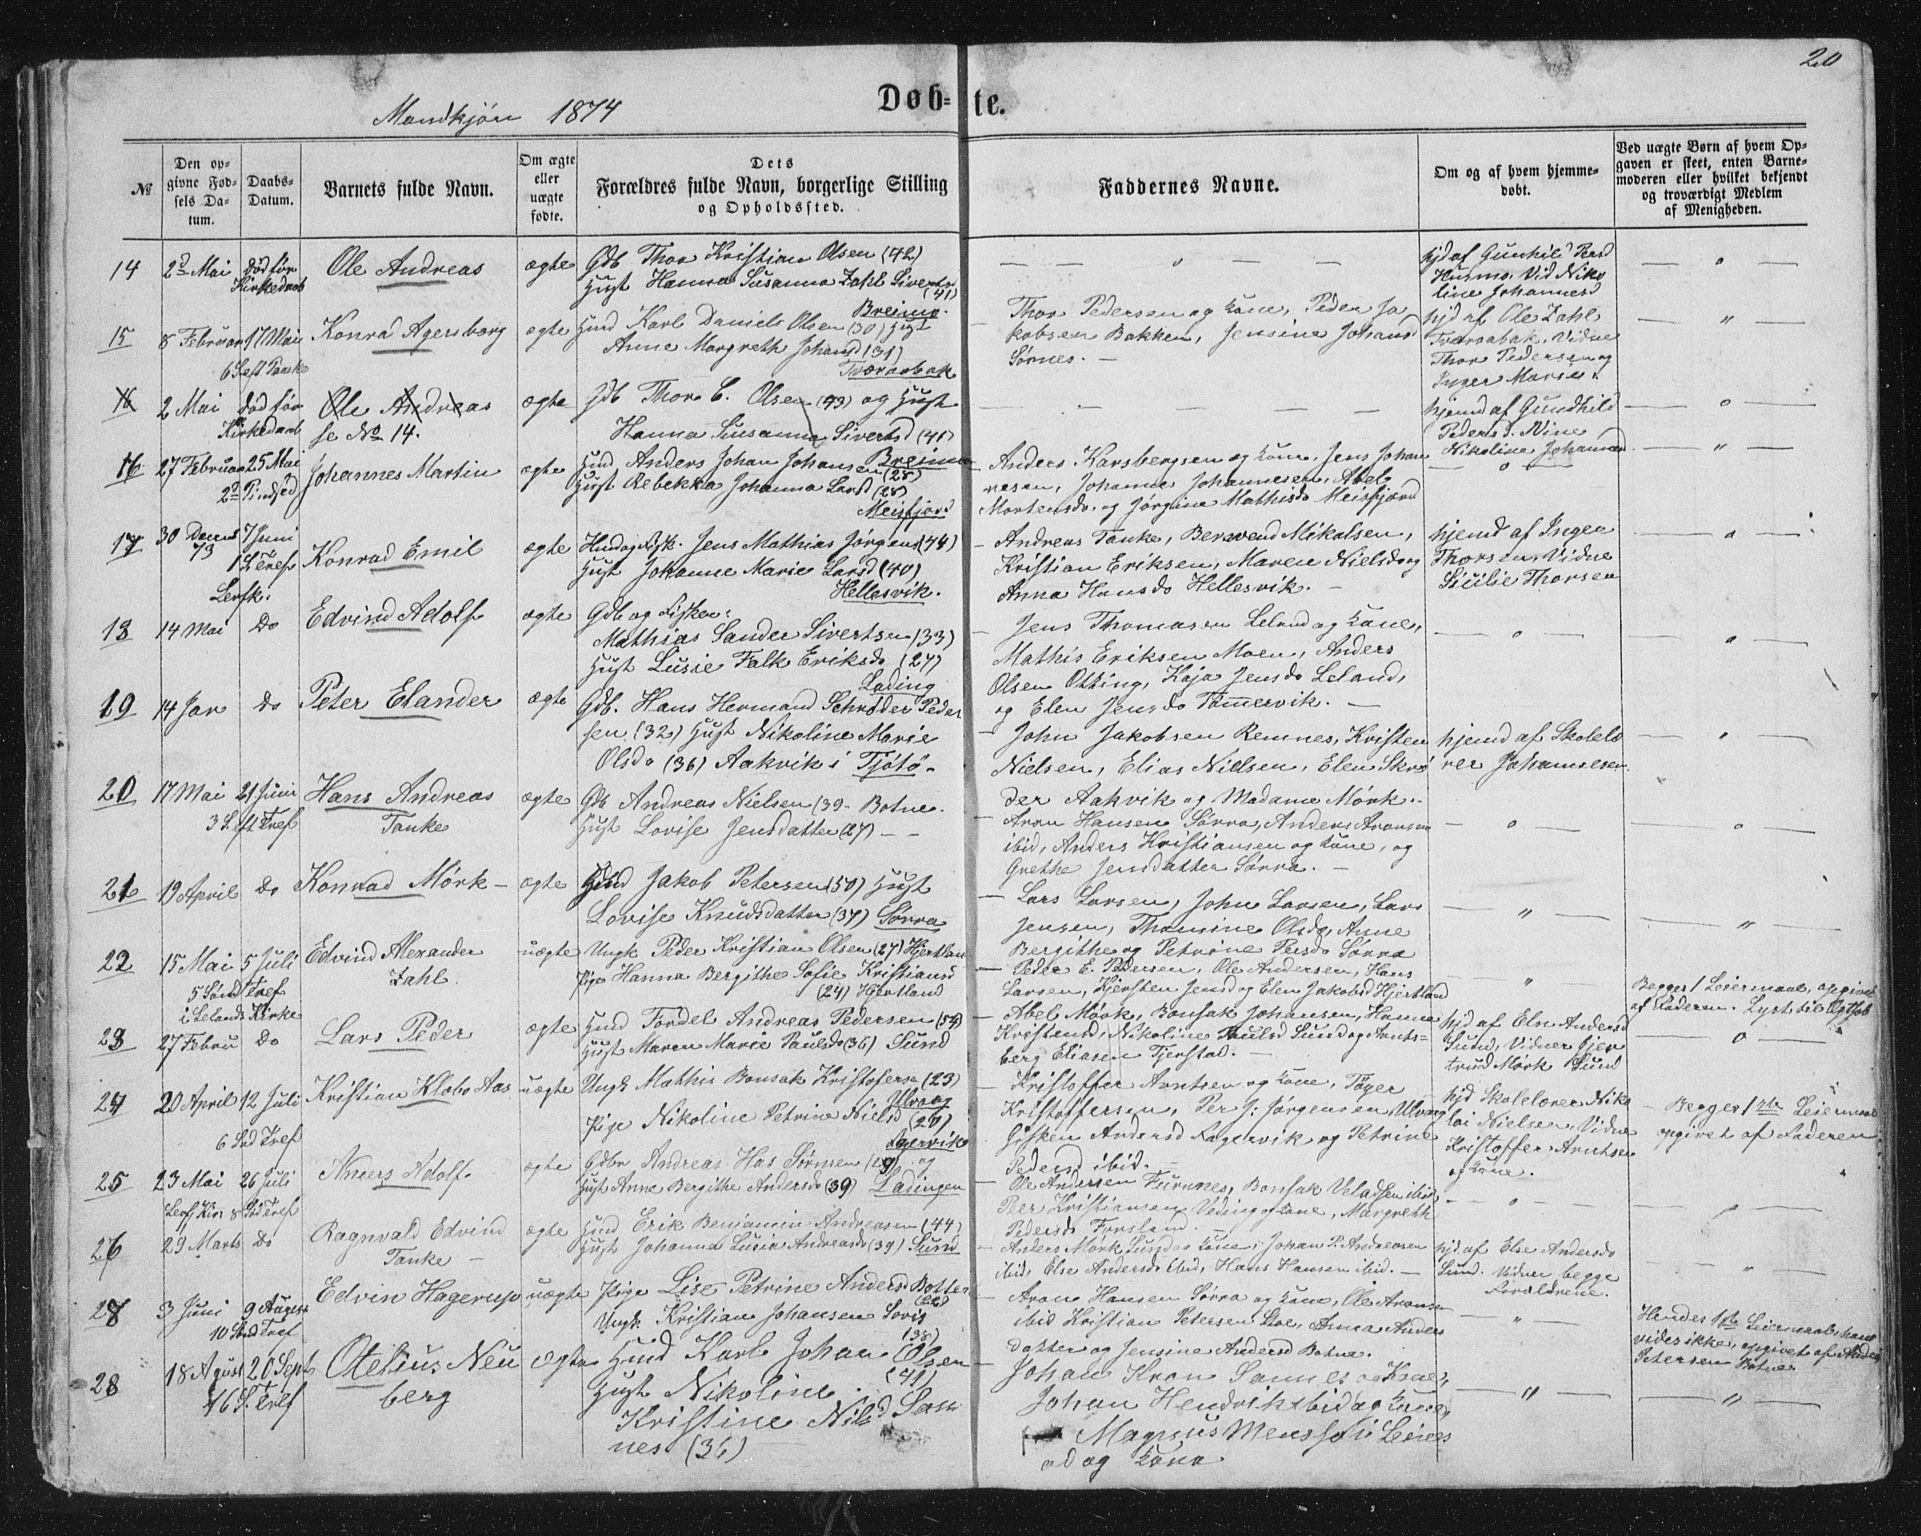 20
Mandkjøn 1874
Døb-te.
№
Den opgivne Fødsels Datum.
Daabs-Datum.
Barnets fulde Navn.
Om ægte eller uægte fødte.
Dets Forældres fulde Navn, borgerlige Stilling og Opholdssted.
Faddernes Navne.
Om og af hvem hjemmedøbt.
Ved uægte Børn af hvem Opgaven er skeet, enten Barnemoderen eller hvilket bekjendt og troværdigt Medlem af Menigheden.
14 2den Mai død før Kirkedaab Ole Andreas ægte
Gdb Thor Kristian Olsen (42)
Hust Hanna Susanna Zahl Sivertsd (41)
Breimo.
hjd af Gunhild Persd
Husmo, Vid Niko
line Johannesd
15 8 Februar 17 Mai Konrad Agersborg ægte
6 S eft Paaske
Hmd Karl Daniels Olsen (30) Hust
Anne Margreth Johansd (31)
Tværaabak
Thor Pedersen og Kone, Peder Ja
kobsen Bakken, Jensine Johansd
Sørnes. —
hjd af Ole Zahl
Tværaabak, Vidne
Thor Pedersen og
Inger Marie.
16 2 Mai død før Kirkedaab Ole Andreas ægte
se No 14.
Gdb Thor C. Olsen (43) og Hust
Hanna Susanna Sivertsd (41)
Breimo
hjemd af Gundhild
Pedersd. Vine
Nikoline Johannesd
16 27 Februar 25 Mai Johannes Martin ægte
2den Pindsed
Hmd Anders Johan Johansen (28)
Hust Rebekka Johanna Larsd (28)
Meisfjord
Anders Karsbergsen og Kone, Jens Johan
nesen, Johannes Johannesen, Abel
Mortensdr. og Jørgine Mathisdr Meisfjord
17 30 Decemb 73 7 Juni Konrad Emil ægte
1 S Tref
Leirfk.
Hmd og Fisk. Jens Mathias Jørgens (44)
Hust Johanne Marie Larsd (40)
Hellesvik.
Andreas Tanke, Berwend Mikalsen,
Kristian Eriksen, Maren Nielsd og
Anna Hansd Hellesvik. —
hjemd af Inger
Thorsen, Vidne
Sicilie Thorsen
18 14 Mai Do Edvind Adolf ægte
Gdb og Fisker.
Mathias Sander Sivertsen (33)
Hust Lusie Falk Eriksd (27)
Lading
Jens Thomasen Leland og Kone,
Mathis Eriksen Moen, Anders
Olsen Otting, Kaja Jensd Leland,
og Elen Jensd Tømmervik. —
19 14 Jan Do Peter Elander ægte
Gdb. Hans Hermand Schrøder Peder
sen (32) Hust Nikoline Marie
Olsdr (36) Aakvik i Tjøtø.
John Jakobsen Remnes, Kristen
Nielsen, Elias Nielsen, Elen Skrø
der Aakvik og Madame Mørk. —
hjemd af Skolelæ
rer Johannesen.
20 17 Mai 21 Juni Hans Andreas Tanke ægte
3 S eft Tref
Gdb Andreas Nielsen (39 - Botne.
Hust Lovise Jensdatter (27) — —
Aron Hansen Sørra, Anders Aronsen
ibid, Anders Kristiansen og Kone, og
Grethe Jensdatter Sørra. —
21 19 April Do Konrad Mørk — ægte
Hmd Jakob Petersen (50) Hust
Lovise Knudsdatter (37) Sørra
Lars Larsen, John Larsen, Lars
Jensen, Thomine Olsdr, Anne
Bergithe og Petrine Persdr Sørra
22 15 Mai 5 Juli Edvind Alexander Zahl. uægte
5 Sønd Tref
i Lelands Kirke
Ungk Peder Kristian Olsen (27) Hjertland
Pige Hanna Bergithe Sofie Kristiansd
(24) Hjertland
Peder E. Pedersen, Ole Andersen, Hans
Larsen, Kirsten Jensd og Elen Jakobsd Hjertland
Begges 1 Leiermaal, opgivet
af Faderen.
23 27 Febru Do Lars Peder ægte
Hmd Tordel Andreas Pedersen (54)
Hust Maren Marie Paulsd (36) Sund
Abel Mørk, Bonsak Johansen, Hanna
Kristansd, Nikoline Paulsd Sund og Arnts-
berg Eliasen Fjerstad. —
hjd af Eln Andersd
Sund, Vidner Gjer
trud Mørk Sund
24 20 April 12 Juli Kristian Klobo Aas uægte
6 Sd Tref
Ungk Mathis Bonsak Kristofersen (23)
Ulvaag
Pige Nikoline Petrine Nielsd (26)
Fagervik
Kristoffer Arntsen og Kone, Tøger
Kristoffersen, Per J: Jørgensen Ulvaag
Gisken Andersd Fagervik og Petrine
Pedersd ibid. —
hjd Skolelærer Niko
lai Nielsen, Vidne
Kristoffer Arntsen
og Kone.
Begges 1ste Leiermaal
opgivet af Faderen
25 23 Mai 26 Juli Anders Adolf ægte
Leirf Kir: 8 Sd Tref
Gdbr Andreas Has Sørmsen (29) og
Hust Anne Bergithe Andersd (39) Ladingen
Ole Andersen Furunes, Bonsak Veladsen ibid,
Peer Kristiansen Veding og Kone, Margreth
Pedersd Forsland. —
26 29 Marts Do Ragnvald Edvind Tanke — ægte
Hmd Erik Benjamin Andreasen (44)
Hust Johanna Lusia Andreasd (39) Sund
Anders Mørk Sund og Kone, Johan P. Andreasen
ibid, Else Andersd ibid, Hans Hansen ibid. —
hjd. af Else Andersdr
Sund. Vidner begge
Forældrene.
27 3 Juni 9 August Edvin Hagerup uægte
10 Snd Tref
Pige Lise Petrine Andersd Botne
Ungk Kristian Johansen Sovis
Aron Hansen Sørra og Kone, Ole Aronsen
ibid Kristian Petersen Skoe, Anna Anders
datter og Jensine Andersd Botne.
Hendes 1ste Leiermaal, hans
vides ikke, opgivet af
Petersen Botne
28 18 Agust 20 Sept Otelius Neu berg ægte
16 S. Tref
Hmd Karl Johan Olsen (38)
(41)
Hust Nikoline
Kristine Nilsd San
nes (36)
Johan Kron Sannes og Kone,
Johan Hendrik ibid og Kone,
Magnus Mensson i Leines
od og Kone